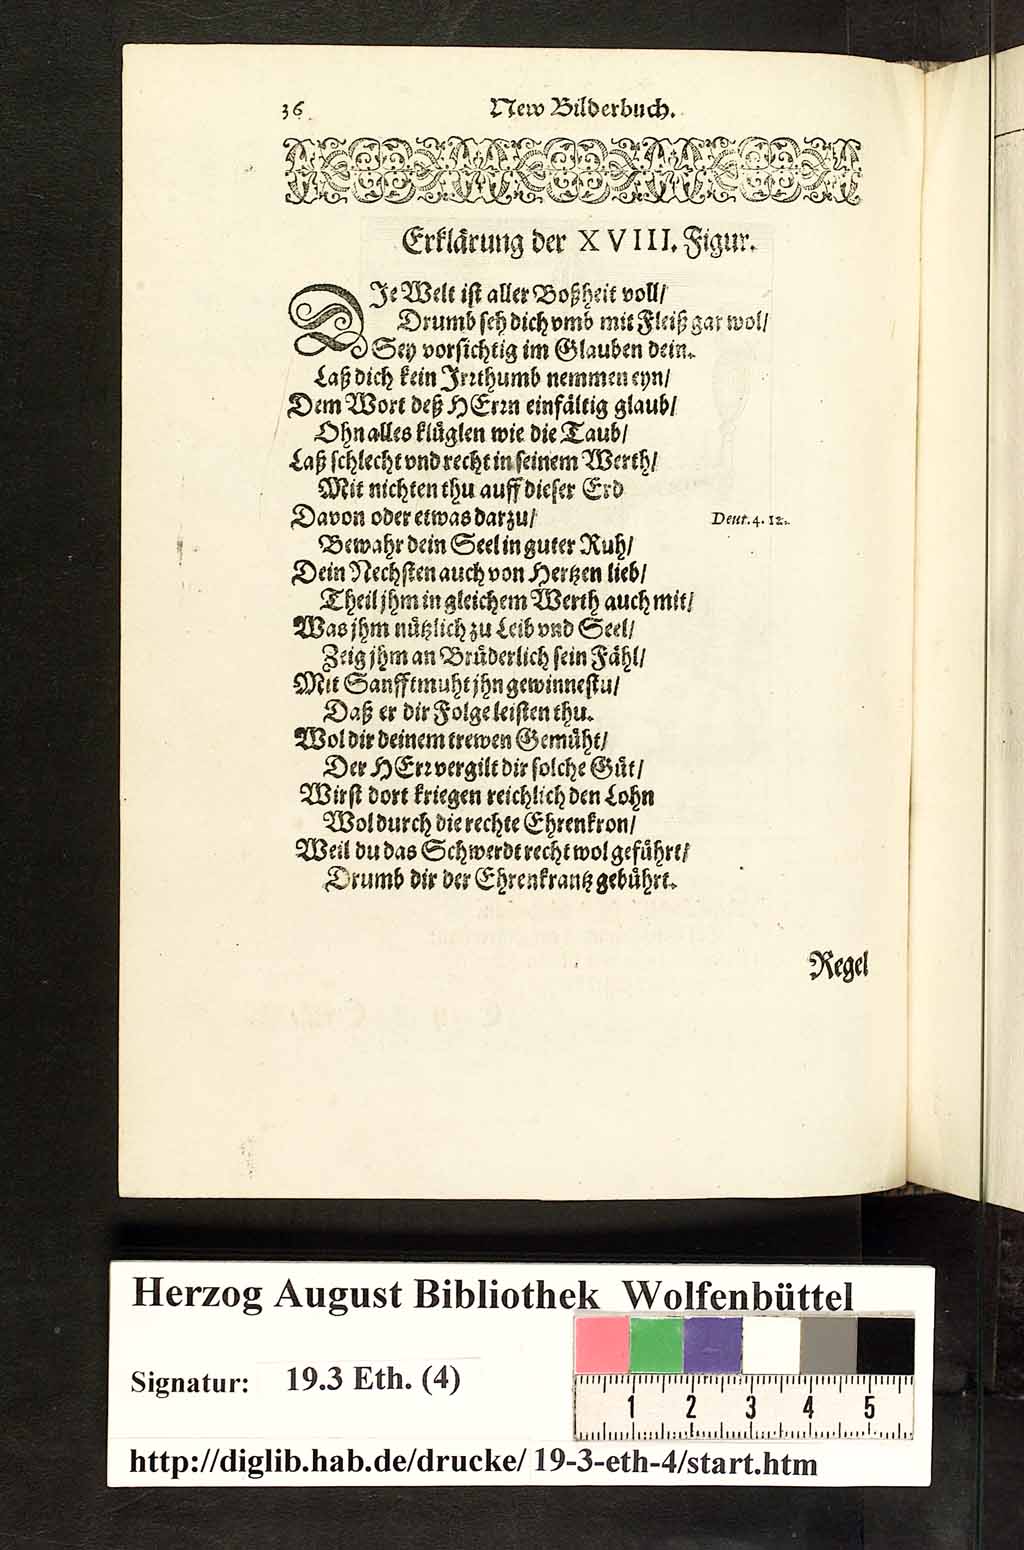 36 New Bilderbuch.
Erklärung der XVIII. Figur.
DIe Welt ist aller Boßheit voll/
Drumb seh dich vmb mit Fleiß gar wol/
Sey vorsichtig im Glauben dein.
Laß dich kein Irrthumb nemmen eyn/
Dem Wort deß HErrn einfältig glaub/
Ohn alles klüglen wie die Taub/
Laß schlecht vnd recht in seinem Werth/
Mit nichten thu auff dieser Erd
Davon oder etwas darzu/
Deut. 4. 12.
Bewahr dein Seel in guter Ruh/
Dein Nechsten auch von Hertzen lieb/
Theil jhm in gleichem Werth auch mit/
Was jhm nützlich zu Leib vnd Seel/
Zeig jhm an Brüderlich sein Fähl/
Mit Sanfftmuht jhn gewinnestu/
Daß er dir Folge leisten thu.
Wol dir deinem trewen Gemüht/
Der HErr vergilt dir solche Güt/
Wirst dort kriegen reichlich den Lohn
Wol durch die rechte Ehrenkron/
Weil du das Schwerdt recht wol geführt/
Drumb dir der Ehrenkrantz gebührt.
Regel
Herzog August Bibliothek Wolfenbüttel
Signatur: 19.3 Eth. (4)
1 2 3 4 5
http://diglib.hab.de/drucke/19-3-eth-4/start.htm